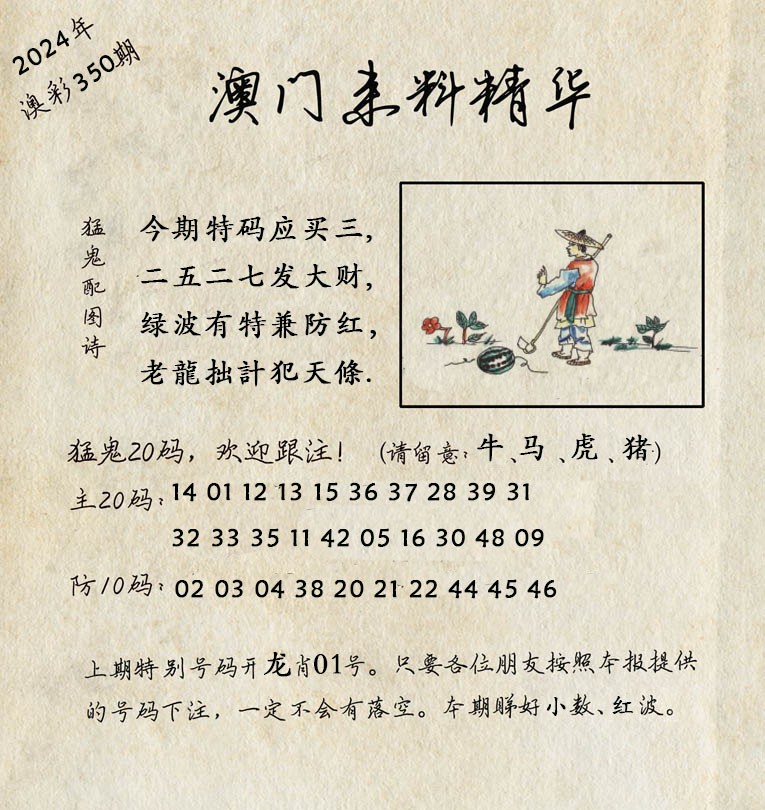 2024年
澳彩350期
澳门来料精华
猛鬼配图诗
今期特码应买三,
二五二七发大财,
绿波有特兼防红,
老龍拙計犯天條.
猛鬼20码，欢迎跟注！（请留意：牛、马、虎、猪）
主20码：14 01 12 13 15 36 37 28 39 31
32 33 35 11 42 05 16 30 48 09
防10码：02 03 04 38 20 21 22 44 45 46
上期特别号码开龙肖01号。只要各位朋友按照本报提供
的号码下注，一定不会有落空。本期睇好小数、红波。